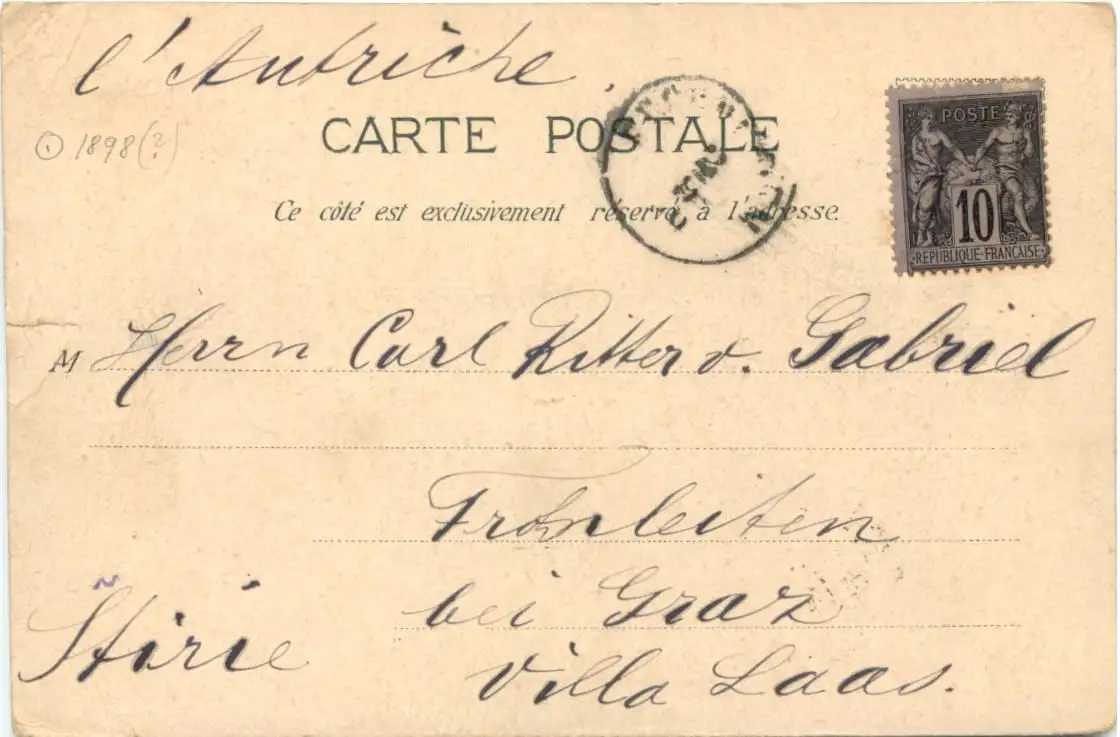 l'Autriche.
1898(?)
CARTE POSTALE
POSTE
10
REPUBLIQUE FRANCAISE
Ce côté est exclusivement réservé à l'adresse.
M Herrn Carl Ritter v. Gabriel
Frohnleiten
bei Graz
Stirie
Villa Laas.